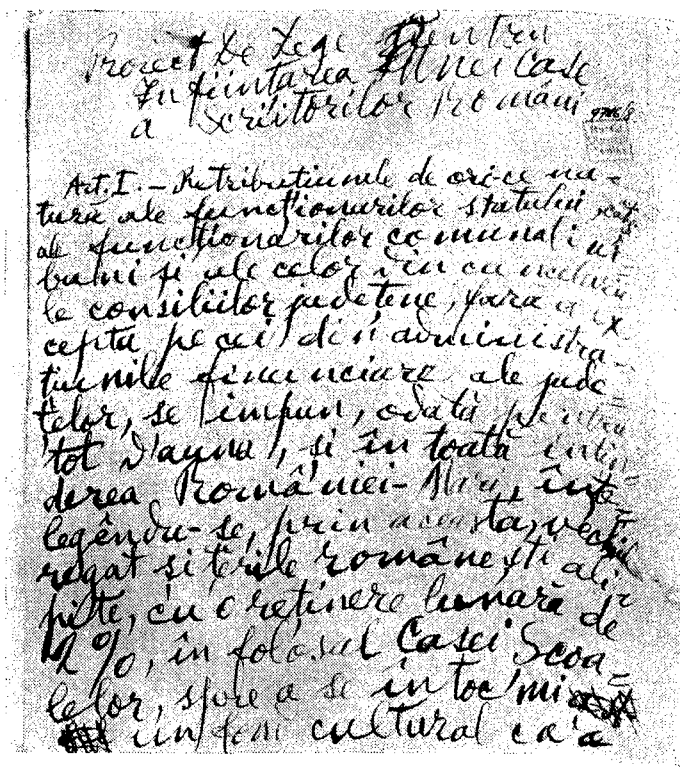 Proiect de Lege Pentru
Înființarea Unei Case
a Scriitorilor Români
Art. I. – Retribuțiunile de ori-ce na-
tură ale funcționarilor statului
ale funcționarilor comunali ur
bani și ale celor din cancelarii
le consiliilor județene, fără a ex
cepta pe cei din administra-
țiunile financiare ale jude-
țelor, se impun, odată pentru
tot d'auna, și în toată întin
derea României-Mari, înțe-
legêndu-se, prin aceasta, vechiul
regat și țerile românești ali-
pite, cu o reținere lunară de
%, în folosul Casei Școa-
lelor, spre a se întocmi
un fond cultural ca a